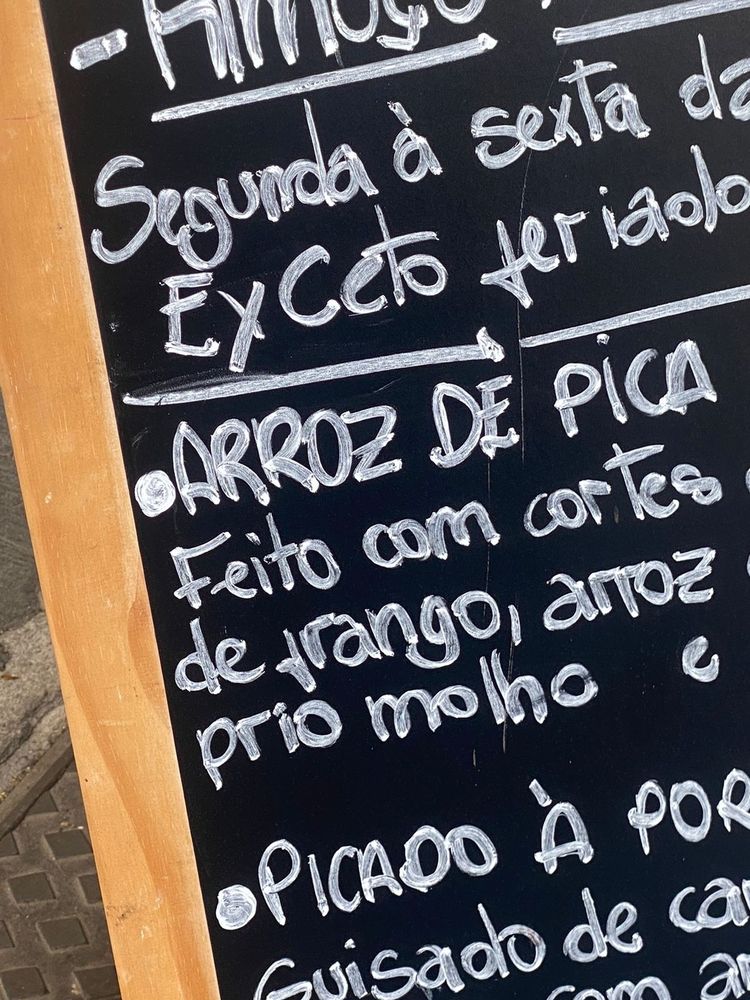 - Almoço
Segunda à sexta da
Exceto feriado
• ARROZ DE PICA
Feito com cortes
de frango, arroz
prio molho e
• PICADO À POR
Guisado de car
com ar